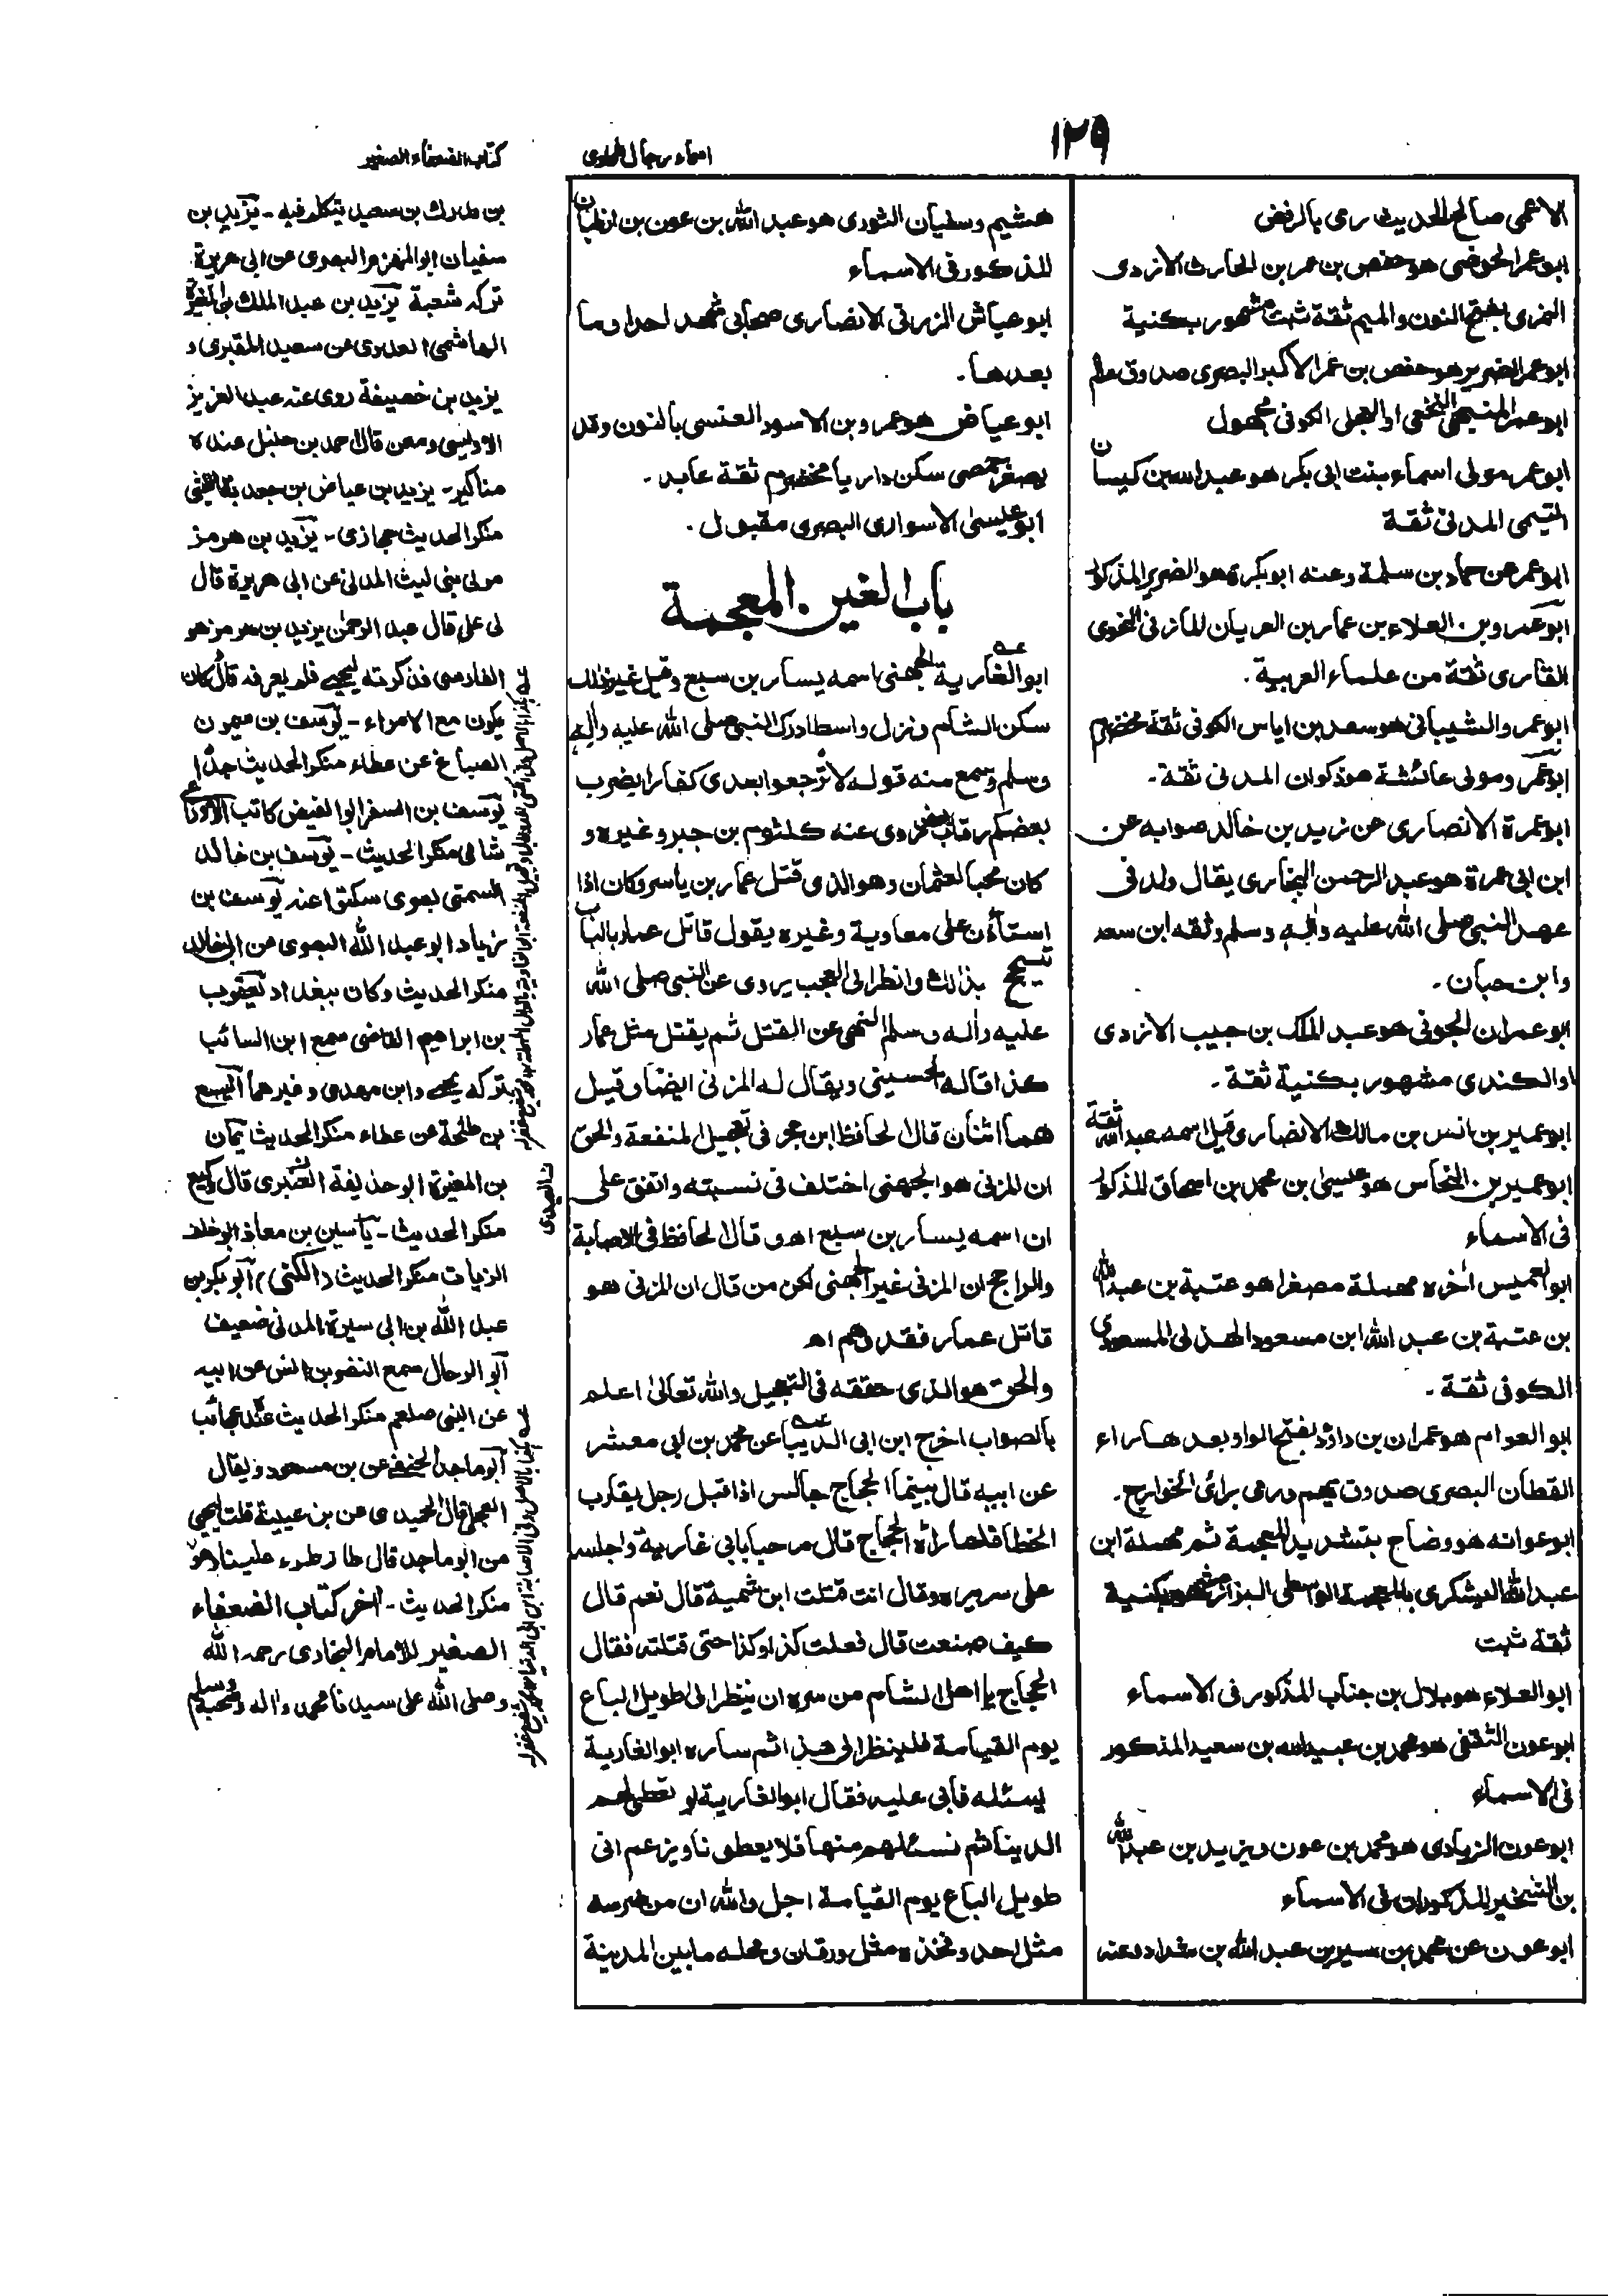 ١٢٩
اسماء رجال الطحاوى
كتاب الضعفاء الصغير
الاعمى صالح الحديث رمى بالرفض
ابو عمر الحوضى هو حفص بن عمر بن الحارث الازدى
النمرى بفتح النون والميم ثقة ثبت مشهور بكنية
ابو عمر الضرير هو حفص بن عمر الاكبر البصرى صدوق عالم
ابو عمر المنبهى النخعى او العجلى الكوفى مجهول
ابو عمر مولى اسماء بنت ابى بكر هو عبد الله بن كيسان
التيمى المدنى ثقة
ابو عمر عن حماد بن سلمة وعنه ابو بكرة هو الضرير المذكور
ابو عمرو بن العلاء بن عمار بن العريان المازنى النحوى
القارى ثقة من علماء العربية .
ابو عمرو الشيبانى هو سعد بن اياس الكوفى ثقة مخضرم
ابو عمرو مولى عائشة هو ذكوان المدنى ثقة .
ابو عمرة الانصارى عن زيد بن خالد صوابه عن
ابن ابى عمرة هو عبد الرحمن البخارى يقال ولد فى
عهد النبى صلى الله عليه واله وسلم وثقه ابن سعد
وابن حبان .
ابو عمران الجونى هو عبد الملك بن حبيب الازدى
او الكندى مشهور بكنية ثقة .
ابو عمير بن انس بن مالك الانصارى قيل اسمه عبد الله ثقة
ابو عمير بن النحاس هو عيسى بن محمد بن اسحاق المذكور
فى الاسماء
ابو العميس أخره مهملة مصغرا هو عتبة بن عبد الله
بن عتبة بن عبد الله ابن مسعود الهذلى المسعودى
الكوفى ثقة .
ابو العوام هو عمران بن داؤد بفتح الواو بعدها راء
القطان البصرى صدوق يهم ورمى برائ الخوارج .
ابو عوانه هو وضاح بتشديد المعجمة ثم مهملة ابن
عبد الله اليشكرى بالمعجمة الواسطى البزاز مشهور بكنية
ثقة ثبت
ابو العلاء هو هلال بن جناب المذكور فى الاسماء
ابو عون الثقفى هو محمد بن عبيد الله بن سعيد المذكور
فى الاسماء
ابو عون الزيادى هو محمد بن عون ويزيد بن عبد الله
بن الشخير المذكوران فى الاسماء
ابو عون عن محمد بن سيرين عبد الله بن شداد وعنه
هشيم وسفيان الثورى هو عبد الله بن عون بن ارطبان
المذكور فى الاسماء
ابو عياش الزرقى الانصارى صحابى شهد احدا وما
بعدها .
ابو عياض هو عمرو بن الاسود العنسى بالنون وقد
يصغر حمصى سكن داريا مخضرم ثقة عابد .
ابو عيسى الاسوارى البصرى مقبول .
باب الغين المعجمة
ابو الغارية الجهنى اسمه يسار بن سبع وقيل غير ذلك
سكن الشام ونزل واسطا درك النبى صلى الله عليه واله
وسلم وسمع منه قوله لا ترجعوا بعدى كفارا يضرب
بعضكم رقاب بعض روى عنه كلثوم بن جبر وغيره و
كان محبا لعثمان وهو الذى قتل عمار بن ياسر وكان اذا
استأذن على معاوية وغيره يقول قاتل عمار بالباب
بذالك وانظر الى العجب يروى عن النبى صلى الله
عليه واله وسلم النهى عن القتل ثم يقتل مثل عمار
كذا قاله الحسينى ويقال له المزنى ايضا وقيل
هما اثنان قال الحافظ ابن حجر فى تعجيل المنفعة والحق
ان المزنى هو الجهنى اختلف فى نسبته واتفق على
ان اسمه يسار بن سبع اه وقال الحافظ فى الاصابة
والراجح ان المزنى غير الجهنى لكن من قال ان المزنى هو
قاتل عمار فقد وهم اه
والحق هو الذى حققه فى التعجيل والله تعالى اعلم
بالصواب اخرج ابن ابى الديبا عن محمد بن ابى معشر
عن ابيه قال بينما الحجاج جالس اذا قبل رجل يقارب
الخطا فلما راه الحجاج قال مرحبا بابى غارية واجلسه
على سريره وقال انت قتلت ابن سمية قال نعم قال
كيف صنعت قال فعلت كذا وكذا حتى قتلته فقال
الحجاج يا اهل الشام من سره ان ينظر الى طويل الباع
يوم القيامة فلينظر الى هذا ثم ساره ابو الغارية
يسئله فابى عليه فقال ابو الغارية لهم
الدينا ثم نسئلهم منها فلا يعطونا ويزعم انى
طويل الباع يوم القيامة اجل والله ان من ضرسه
مثل احد وفخذه مثل ورقان ومحله ما بين المدينة
بن مدرك بن سعيد يتكلم فيه - يزيد بن
سفيان ابو المهزم البصرى عن ابى هريرة
تركه شعبة يزيد بن عبد الملك بن المغيرة
الهاشمى عن سعيد المقبرى و
يزيد بن خصيفة روى عنه عبد العزيز
الاويسى ومعن قال احمد بن حنبل عنده
مناكير - يزيد بن عياض بن جعد بة الليثى
منكر الحديث حجازى - يزيد بن هرمز
مولى بنى ليث المدنى عن ابى هريرة قال
لى على قال عبد الرحمن يزيد بن هرمز هو
الفارسى فذكرته ليحيى فلم يعرفه قال كان
يكون مع الامراء - يوسف بن ميمون
الصباغ عن عطاء منكر الحديث جدا
يوسف بن السفر ابو الفيض كاتب الاوزاعى
شامى منكر الحديث - يوسف بن خالد
السمتى بصرى سكتوا عنه يوسف بن
زياد ابو عبد الله البصرى عن ابن ابى خالد
منكر الحديث وكان ببغداد يعقوب
بن ابراهيم القاضى سمع ابن السائب
تركه يحيى وابن مهدى وغيرهما اليسع
بن طلحة عن عطاء منكر الحديث يمان
بن المغيرة ابو حذيفة العنبرى قال وكيع
منكر الحديث - ياسين بن معاذ ابو خلف
الزيات منكر الحديث (الكنى) ابو بكر بن
عبد الله بن ابى سبرة المدنى ضعيف
ابو الرحال سمع النضر بن انس عن ابيه
عن النبى صلعم منكر الحديث عنده عجائب
ابو ماجد الحنفى عن بن مسعود ويقال
العجلى قال الحميدى عن بن عيينة قلت ليحيى
من ابو ماجد قال طائر طرء علينا وهو
منكر الحديث - اخر كتاب الضعفاء
الصغير للامام البخارى رحمه الله
وصلى الله على سيدنا محمد واله وصحبه وسلم